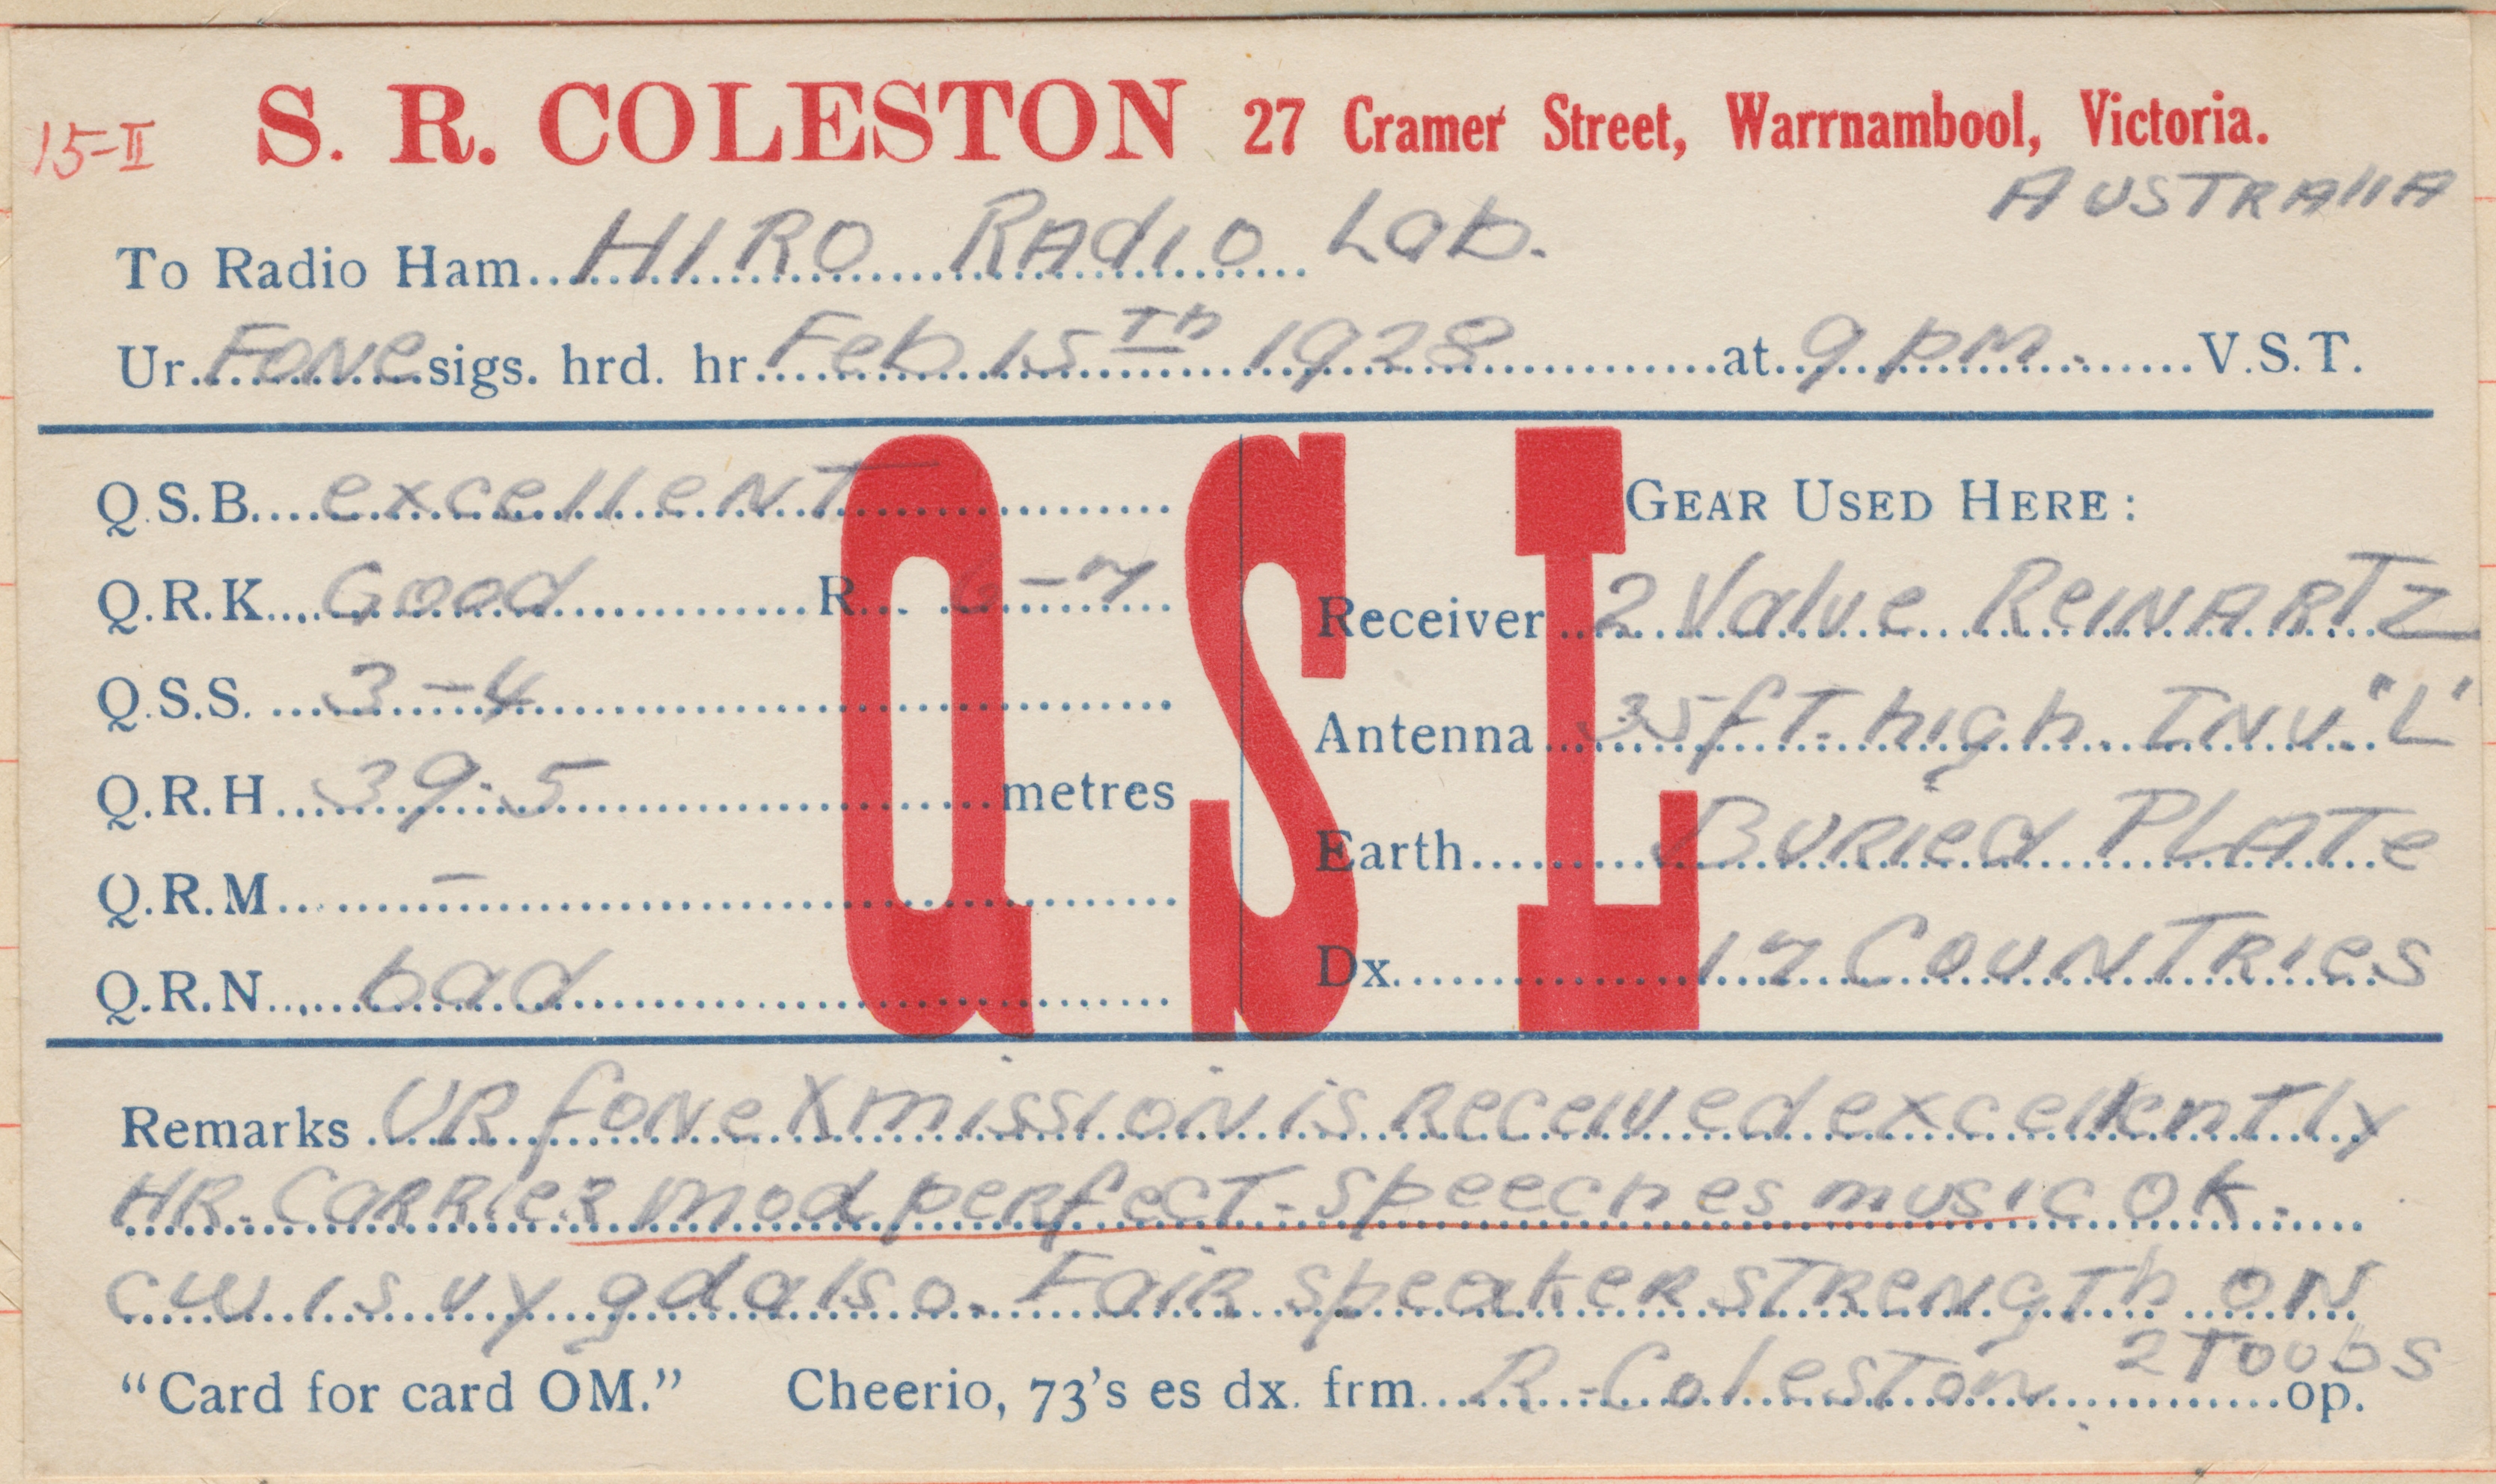 15-II S. R. COLESTON 27 Cramer Street, Warrnambool, Victoria.
AUSTRALIA
To Radio Ham HIRO RADIO Lab.
Ur FONE sigs. hrd. hr Feb 15th 1928 at 9 pm. V.S.T.
QSL
Q.S.B. excellent
Q.R.K. Good R 6-7
Q.S.S. 3-4
Q.R.H. 39.5 metres
Q.R.M. -
Q.R.N. bad
GEAR USED HERE:
Receiver 2 Valve REINARTZ
Antenna 35 ft. high. INV. "L"
Earth BURIED PLATE
Dx. 17 COUNTRIES
Remarks UR fone Xmission is received excellently
HR. CARRIER mod perfect. Speech es music OK.
cw is vy gd also. Fair speaker strength ON
2 Toobs
"Card for card OM." Cheerio, 73's es dx. frm. R. Coleston op.